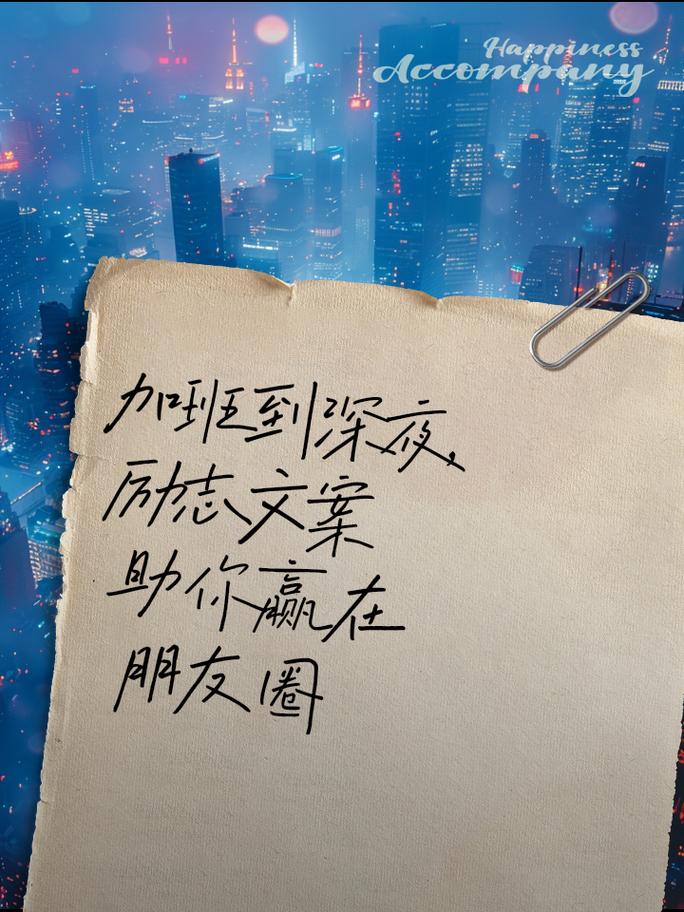 Happiness
Accompany
加班到深夜，
励志文案
助你赢在
朋友圈